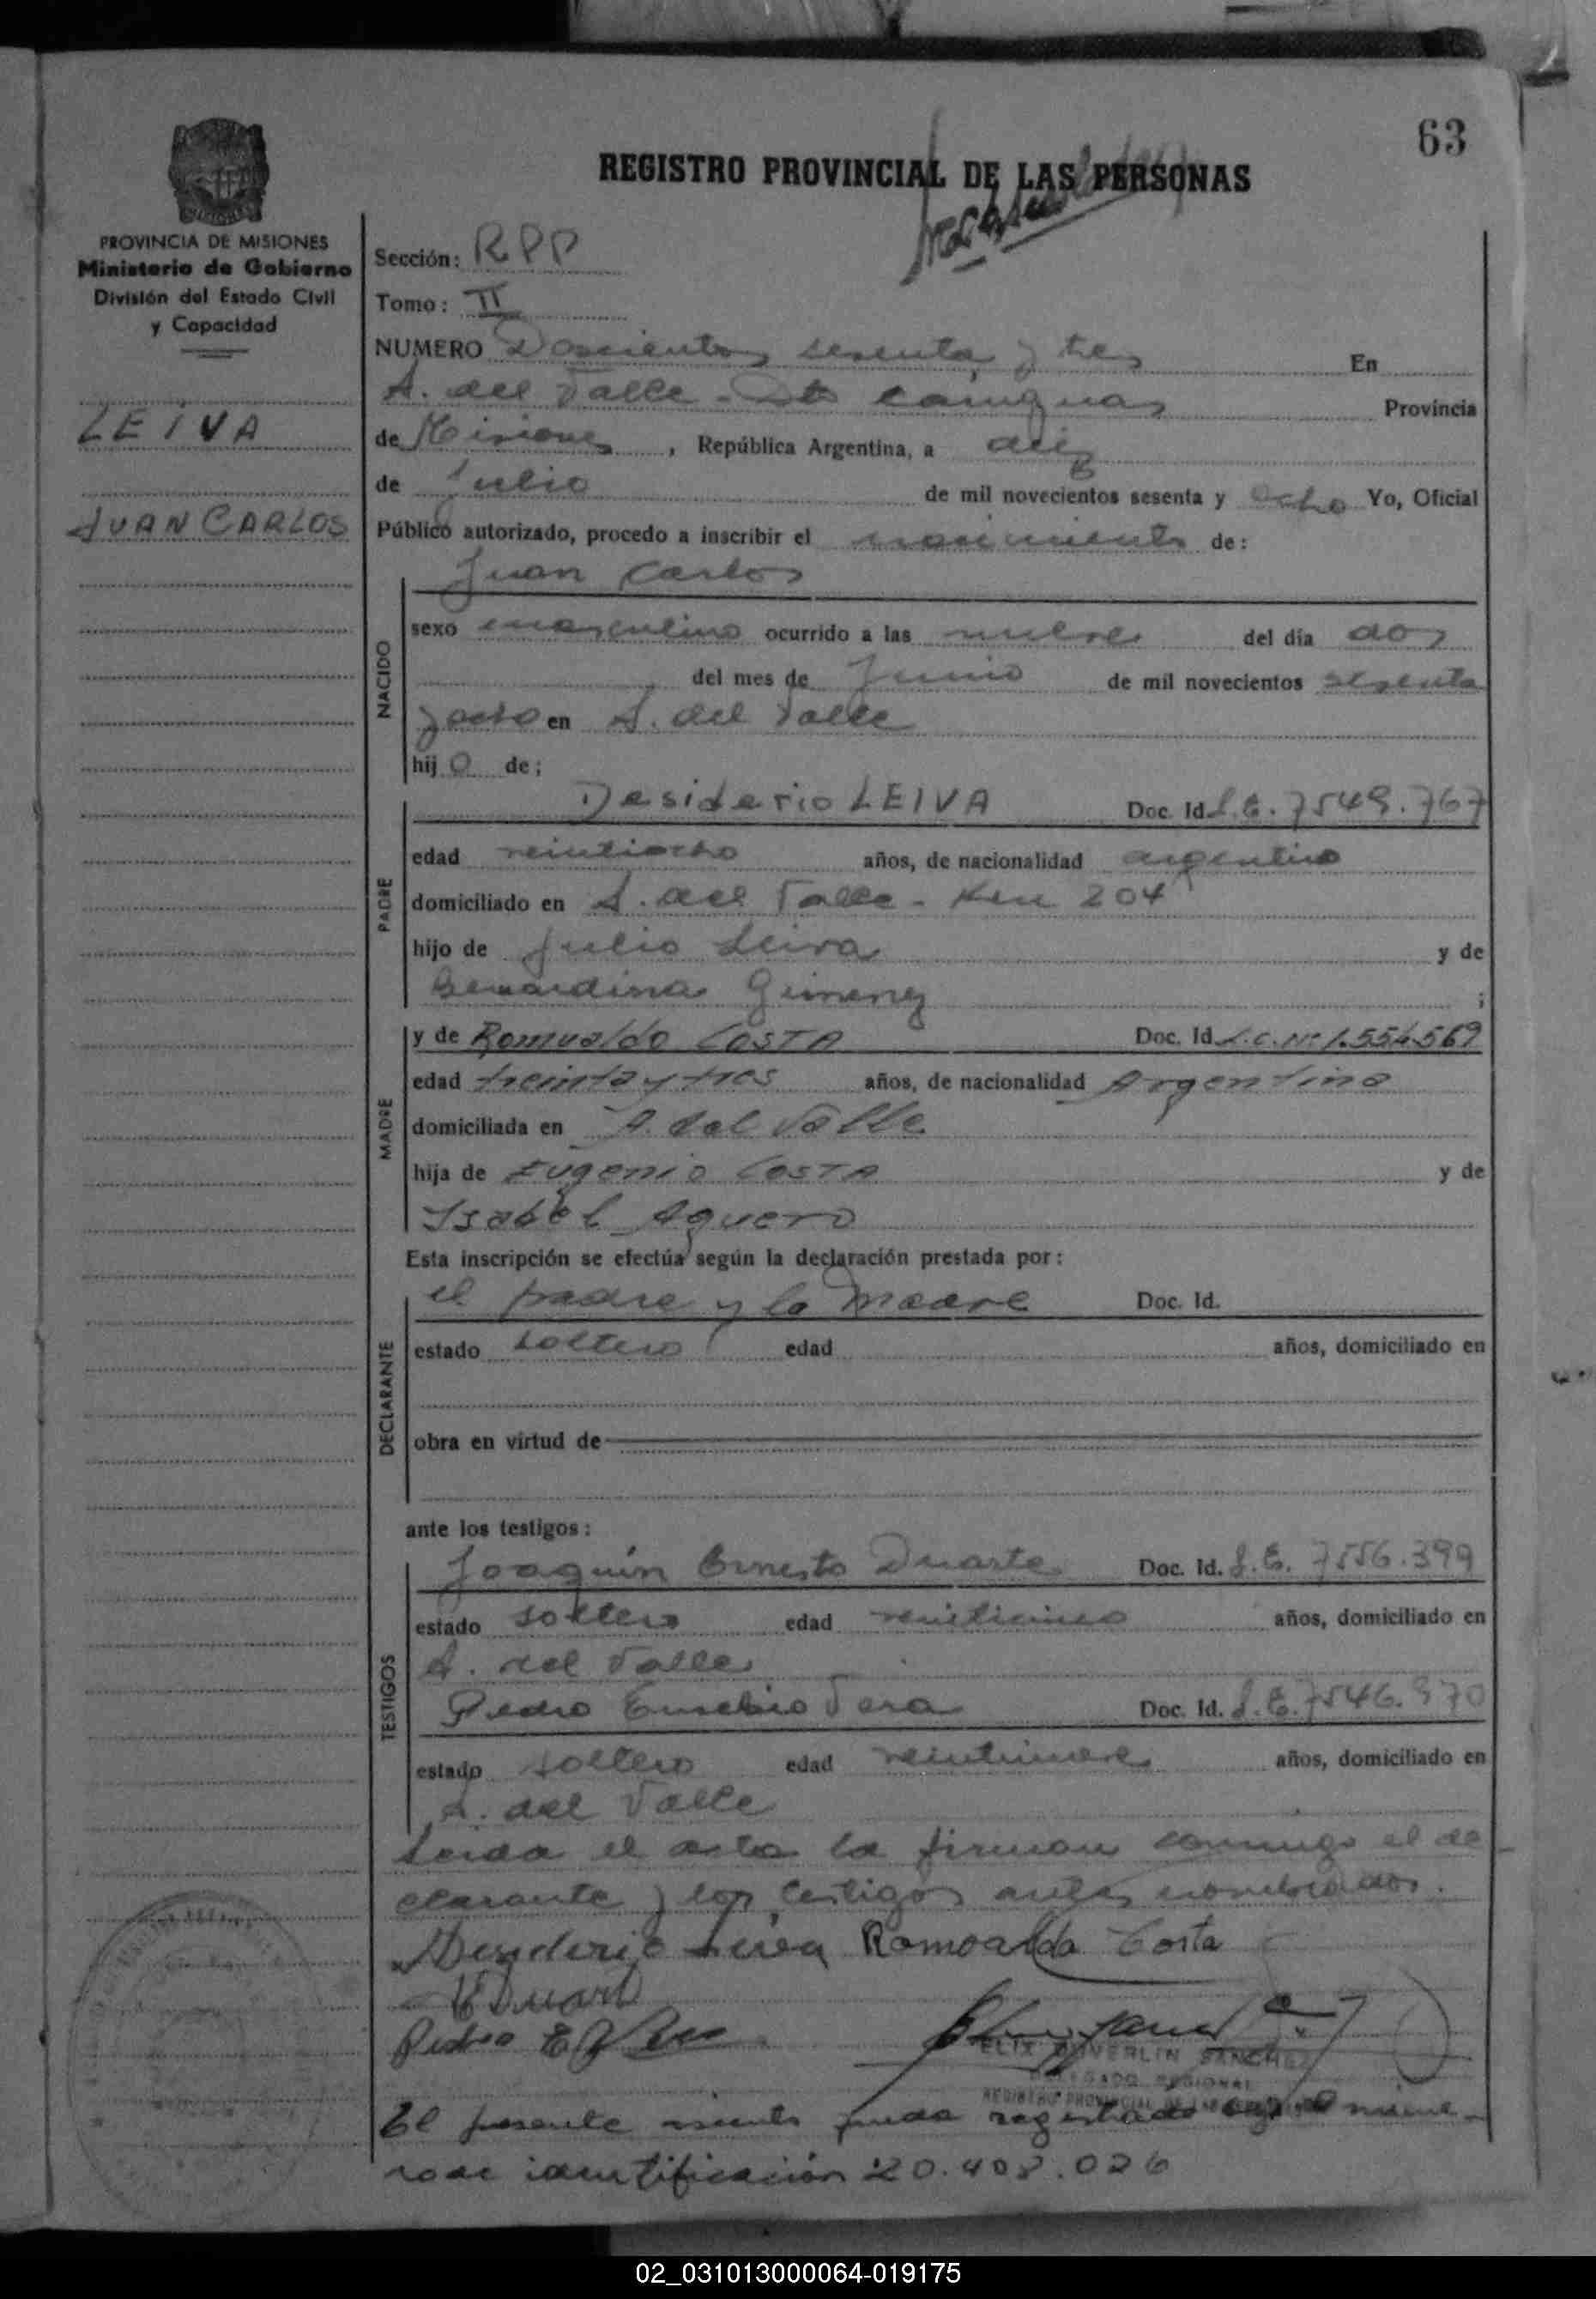 63
REGISTRO PROVINCIAL DE LAS PERSONAS
PROVINCIA DE MISIONES
Ministerio de Gobierno
División del Estado Civil
y Capacidad
LEIVA
JUAN CARLOS
Sección: RPP
Tomo: II
NUMERO Doscientos sesenta y tres En
A. del Valle - Dto Cainguas Provincia
de Misiones, República Argentina, a diez
de Julio de mil novecientos sesenta y ocho Yo, Oficial
Público autorizado, procedo a inscribir el nacimiento de:
Juan Carlos
NACIDO
sexo masculino ocurrido a las nueve del día dos
del mes de Junio de mil novecientos sesenta
y ocho en A. del Valle
hijo de;
PADRE
Desiderio LEIVA Doc. Id. L.E. 7549.767
edad veintiocho años, de nacionalidad argentino
domiciliado en A. del Valle - Km 204
hijo de Julio Leiva y de
Bernardina Gimenez ;
MADRE
y de Romualda COSTA Doc. Id. L.C. Nº 1.554.569
edad treinta y tres años, de nacionalidad Argentina
domiciliada en A. del Valle
hija de Eugenio COSTA y de
Isabel Aguero
Esta inscripción se efectúa según la declaración prestada por:
DECLARANTE
el padre y la madre Doc. Id.
estado soltero edad años, domiciliado en
obra en virtud de
ante los testigos:
TESTIGOS
Joaquín Ernesto Duarte Doc. Id. L.E. 7556.399
estado soltero edad veinticinco años, domiciliado en
A. del Valle
Pedro Eusebio Vera Doc. Id. L.E. 7546.970
estado soltero edad veintinueve años, domiciliado en
A. del Valle
Leida el acta la firman conmigo el de
clarante y los testigos antes nombrados.
Desiderio Leiva Romoalda Costa
Duart
Pedro E Vera
FELIX DUVERLIN SANCHEZ
DELEGADO REGIONAL
REGISTRO PROVINCIAL DE LAS
El presente asiento queda registrado bajo el núme-
ro de identificación 20.408.026
02_031013000064-019175